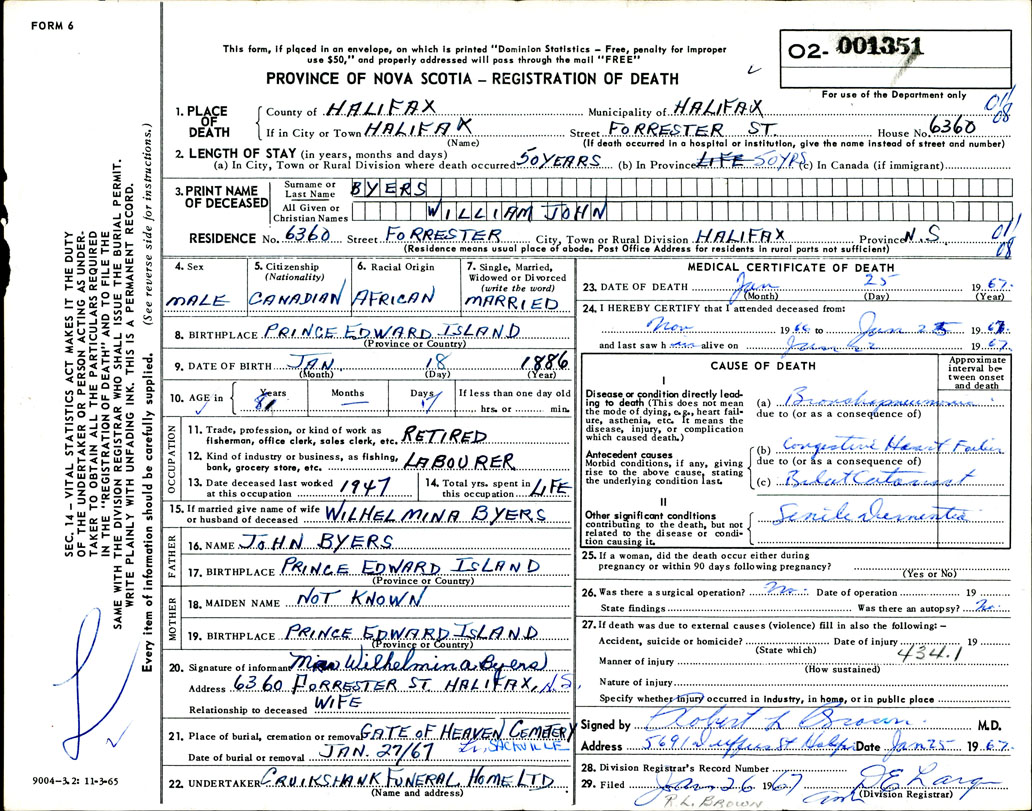 FORM 6
This form, if placed in an envelope, on which is printed "Dominion Statistics – Free, penalty for improper
use $50," and properly addressed will pass through the mail "FREE"
PROVINCE OF NOVA SCOTIA – REGISTRATION OF DEATH
02- 001351
For use of the Department only
1. PLACE OF DEATH County of HALIFAX Municipality of HALIFAX
If in City or Town HALIFAX Street FORRESTER ST. House No. 6360
(Name) (If death occurred in a hospital or institution, give the name instead of street and number)
01/08
2. LENGTH OF STAY (in years, months and days)
(a) In City, Town or Rural Division where death occurred 50 YEARS (b) In Province LIFE 50 YRS (c) In Canada (if immigrant)
3. PRINT NAME OF DECEASED Surname or Last Name BYERS
All Given or Christian Names WILLIAM JOHN
RESIDENCE No. 6360 Street FORRESTER City, Town or Rural Division HALIFAX Province N.S.
(Residence means usual place of abode. Post Office Address for residents in rural parts not sufficient)
01/08
4. Sex MALE
5. Citizenship (Nationality) CANADIAN
6. Racial Origin AFRICAN
7. Single, Married, Widowed or Divorced (write the word) MARRIED
8. BIRTHPLACE PRINCE EDWARD ISLAND
(Province or Country)
9. DATE OF BIRTH JAN. 18 1886
(Month) (Day) (Year)
10. AGE in Years 81 Months — Days 17 If less than one day old
hrs. or min.
OCCUPATION
11. Trade, profession, or kind of work as fisherman, office clerk, sales clerk, etc. RETIRED
12. Kind of industry or business, as fishing, bank, grocery store, etc. LABOURER
13. Date deceased last worked at this occupation 1947
14. Total yrs. spent in this occupation LIFE
15. If married give name of wife or husband of deceased WILHELMINA BYERS
FATHER
16. NAME JOHN BYERS
17. BIRTHPLACE PRINCE EDWARD ISLAND
(Province or Country)
MOTHER
18. MAIDEN NAME NOT KNOWN
19. BIRTHPLACE PRINCE EDWARD ISLAND
(Province or Country)
20. Signature of informant Mrs Wilhelmina Byers
Address 6360 FORRESTER ST. HALIFAX, N.S.
Relationship to deceased WIFE
21. Place of burial, cremation or removal GATE OF HEAVEN CEMETERY
Date of burial or removal JAN. 27/67 SACKVILLE
22. UNDERTAKER CRUIKSHANK FUNERAL HOME LTD
(Name and address)
MEDICAL CERTIFICATE OF DEATH
23. DATE OF DEATH Jan 25 1967.
(Month) (Day) (Year)
24. I HEREBY CERTIFY that I attended deceased from:
Nov 1966 to Jan 25 1967.
and last saw h alive on Jan 1967.
CAUSE OF DEATH
Approximate interval between onset and death
I
Disease or condition directly leading to death (This does not mean the mode of dying, e.g., heart failure, asthenia, etc. It means the disease, injury, or complication which caused death.)
(a) Bronchopneumonia
due to (or as a consequence of)
Antecedent causes
Morbid conditions, if any, giving rise to the above cause, stating the underlying condition last.
(b) Congestive Heart
due to (or as a consequence of)
(c)
II
Other significant conditions contributing to the death, but not related to the disease or condition causing it.
Senile Dementia
25. If a woman, did the death occur either during
pregnancy or within 90 days following pregnancy?
(Yes or No)
26. Was there a surgical operation? No. Date of operation 19
State findings Was there an autopsy? No.
27. If death was due to external causes (violence) fill in also the following: –
Accident, suicide or homicide? Date of injury 19
(State which) 434.1
Manner of injury
(How sustained)
Nature of injury
Specify whether injury occurred in industry, in home, or in public place
Signed by Robert L Brown. M.D.
Address 5691 Duffus St Date Jan 25 1967.
28. Division Registrar's Record Number
29. Filed Jan 26 1967
(Division Registrar)
R.L. BROWN
SEC. 14 – VITAL STATISTICS ACT MAKES IT THE DUTY
OF THE UNDERTAKER OR PERSON ACTING AS UNDERTAKER
TO OBTAIN ALL THE PARTICULARS REQUIRED
IN THE "REGISTRATION OF DEATH" AND TO FILE THE
SAME WITH THE DIVISION REGISTRAR WHO SHALL ISSUE THE BURIAL PERMIT.
WRITE PLAINLY WITH UNFADING INK. THIS IS A PERMANENT RECORD.
Every item of information should be carefully supplied. (See reverse side for instructions.)
9004-3.2: 11-3-65